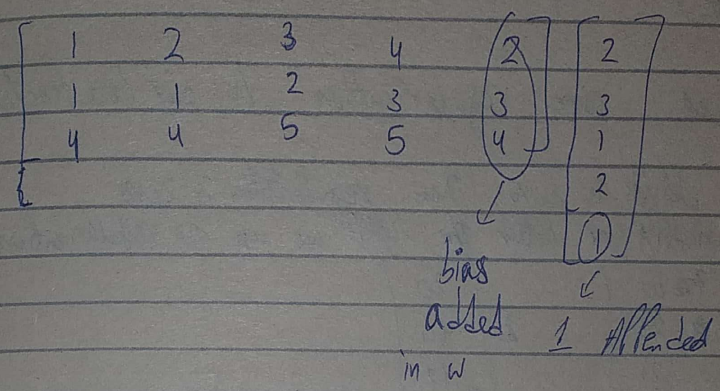 1 2 3 4 2 2
1 1 2 3 3 3
4 4 5 5 4 1
2
1
bias
added
in w
1 Appended